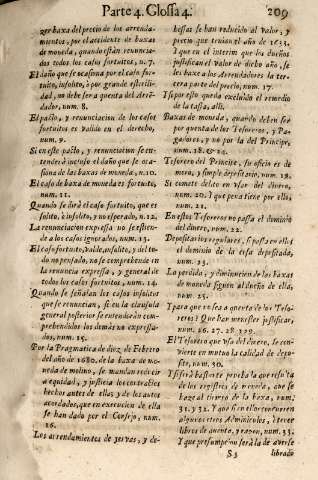 Parte 4. Glossa 4. 209
zer baxa del precio de los arrenda-
mientos, por el accidente de baxas
de moneda, quando estàn renuncia-
dos todos los casos fortuitos, n. 7.
El daño que se ocasiona por el caso for-
tuito, insolito, ò por grande esterili-
dad, no debe ser à quenta del Arrē-
dador, num. 8.
El pacto, y renunciacion de los casos
fortuitos es valido en el derecho,
num. 9.
Si en este pacto, y renunciacion se en-
tenderà incluso el daño que se oca-
siona de las baxas de moneda, n. 10.
El caso de baxa de moneda es fortuito,
num. 11.
Quando se dirà el caso fortuito, que es
solito, ò insolito, y no esperado, n. 12.
La renunciacion expressa no se estien-
de à los casos ignorados, num. 13.
El caso fortuito, valde, insolito, y de to-
do no pensado, no se comprehende en
la renuncia expressa, y general de
todos los casos fortuitos, num. 14.
Quando se señalan los casos insolitos
que se renuncian, si en la clausula
general posterior se entenderàn com-
prehendidos los demàs no expressa-
dos, num. 15.
Por la Pragmatica de diez de Febrero
del año de 1680. de la baxa de mo-
neda de molino, se mandan reducir
à equidad, y justicia los contractos
hechos antes de ellas, y de los autos
acordados, que en execucion de ella
se han dado por el Consejo, num.
16.
Los arrendamientos de yervas, y de-
hessas se han reducido al valor, y
precio que tenian el año de 1633.
y que en el interim que los dueños
justifican el valor de dicho año, se
les baxe à los Arrendadores la ter-
cera parte del precio, num. 17.
Y si por esto queda excluìdo el remedio
de la tassa, alli.
Baxas de moneda, quando deben ser
por quenta de los Tesoreros, y Pa-
gadores, y no por la del Principe,
num. 18. & 24.
Tesorero del Principe, su oficio es de
mero, y simple depositario, num. 19.
Si comete delito en vsar del dinero,
num. 20. Y que pena tiene por ello,
num. 21.
En estos Tesoreros no passa el dominio
del dinero, num. 22.
Depositarios regulares, si passa en ellos
el dominio de la cosa depositada,
num. 23.
La perdida, y diminucion de las baxas
de moneda siguen al dueño de ella,
num. 25.
Y para que no sea à quenta de los Teso-
reros? Què han menester justificar,
num. 26. 27. 28. y 29.
El Tesorero que vsa del dinero, se con-
vierte en mutuo la calidad de depo-
sito, num. 30.
Y si serà bastante prueba la que resulta
de los registros de moneda, que se
haze al tiempo de la baxa, num.
31. y 32. Y què si en ello concurren
algunos otros Adminiculos, ò tener
libros de quenta, y razon, num. 33.
Y que presumpcion serà la de averse
S 3 librado